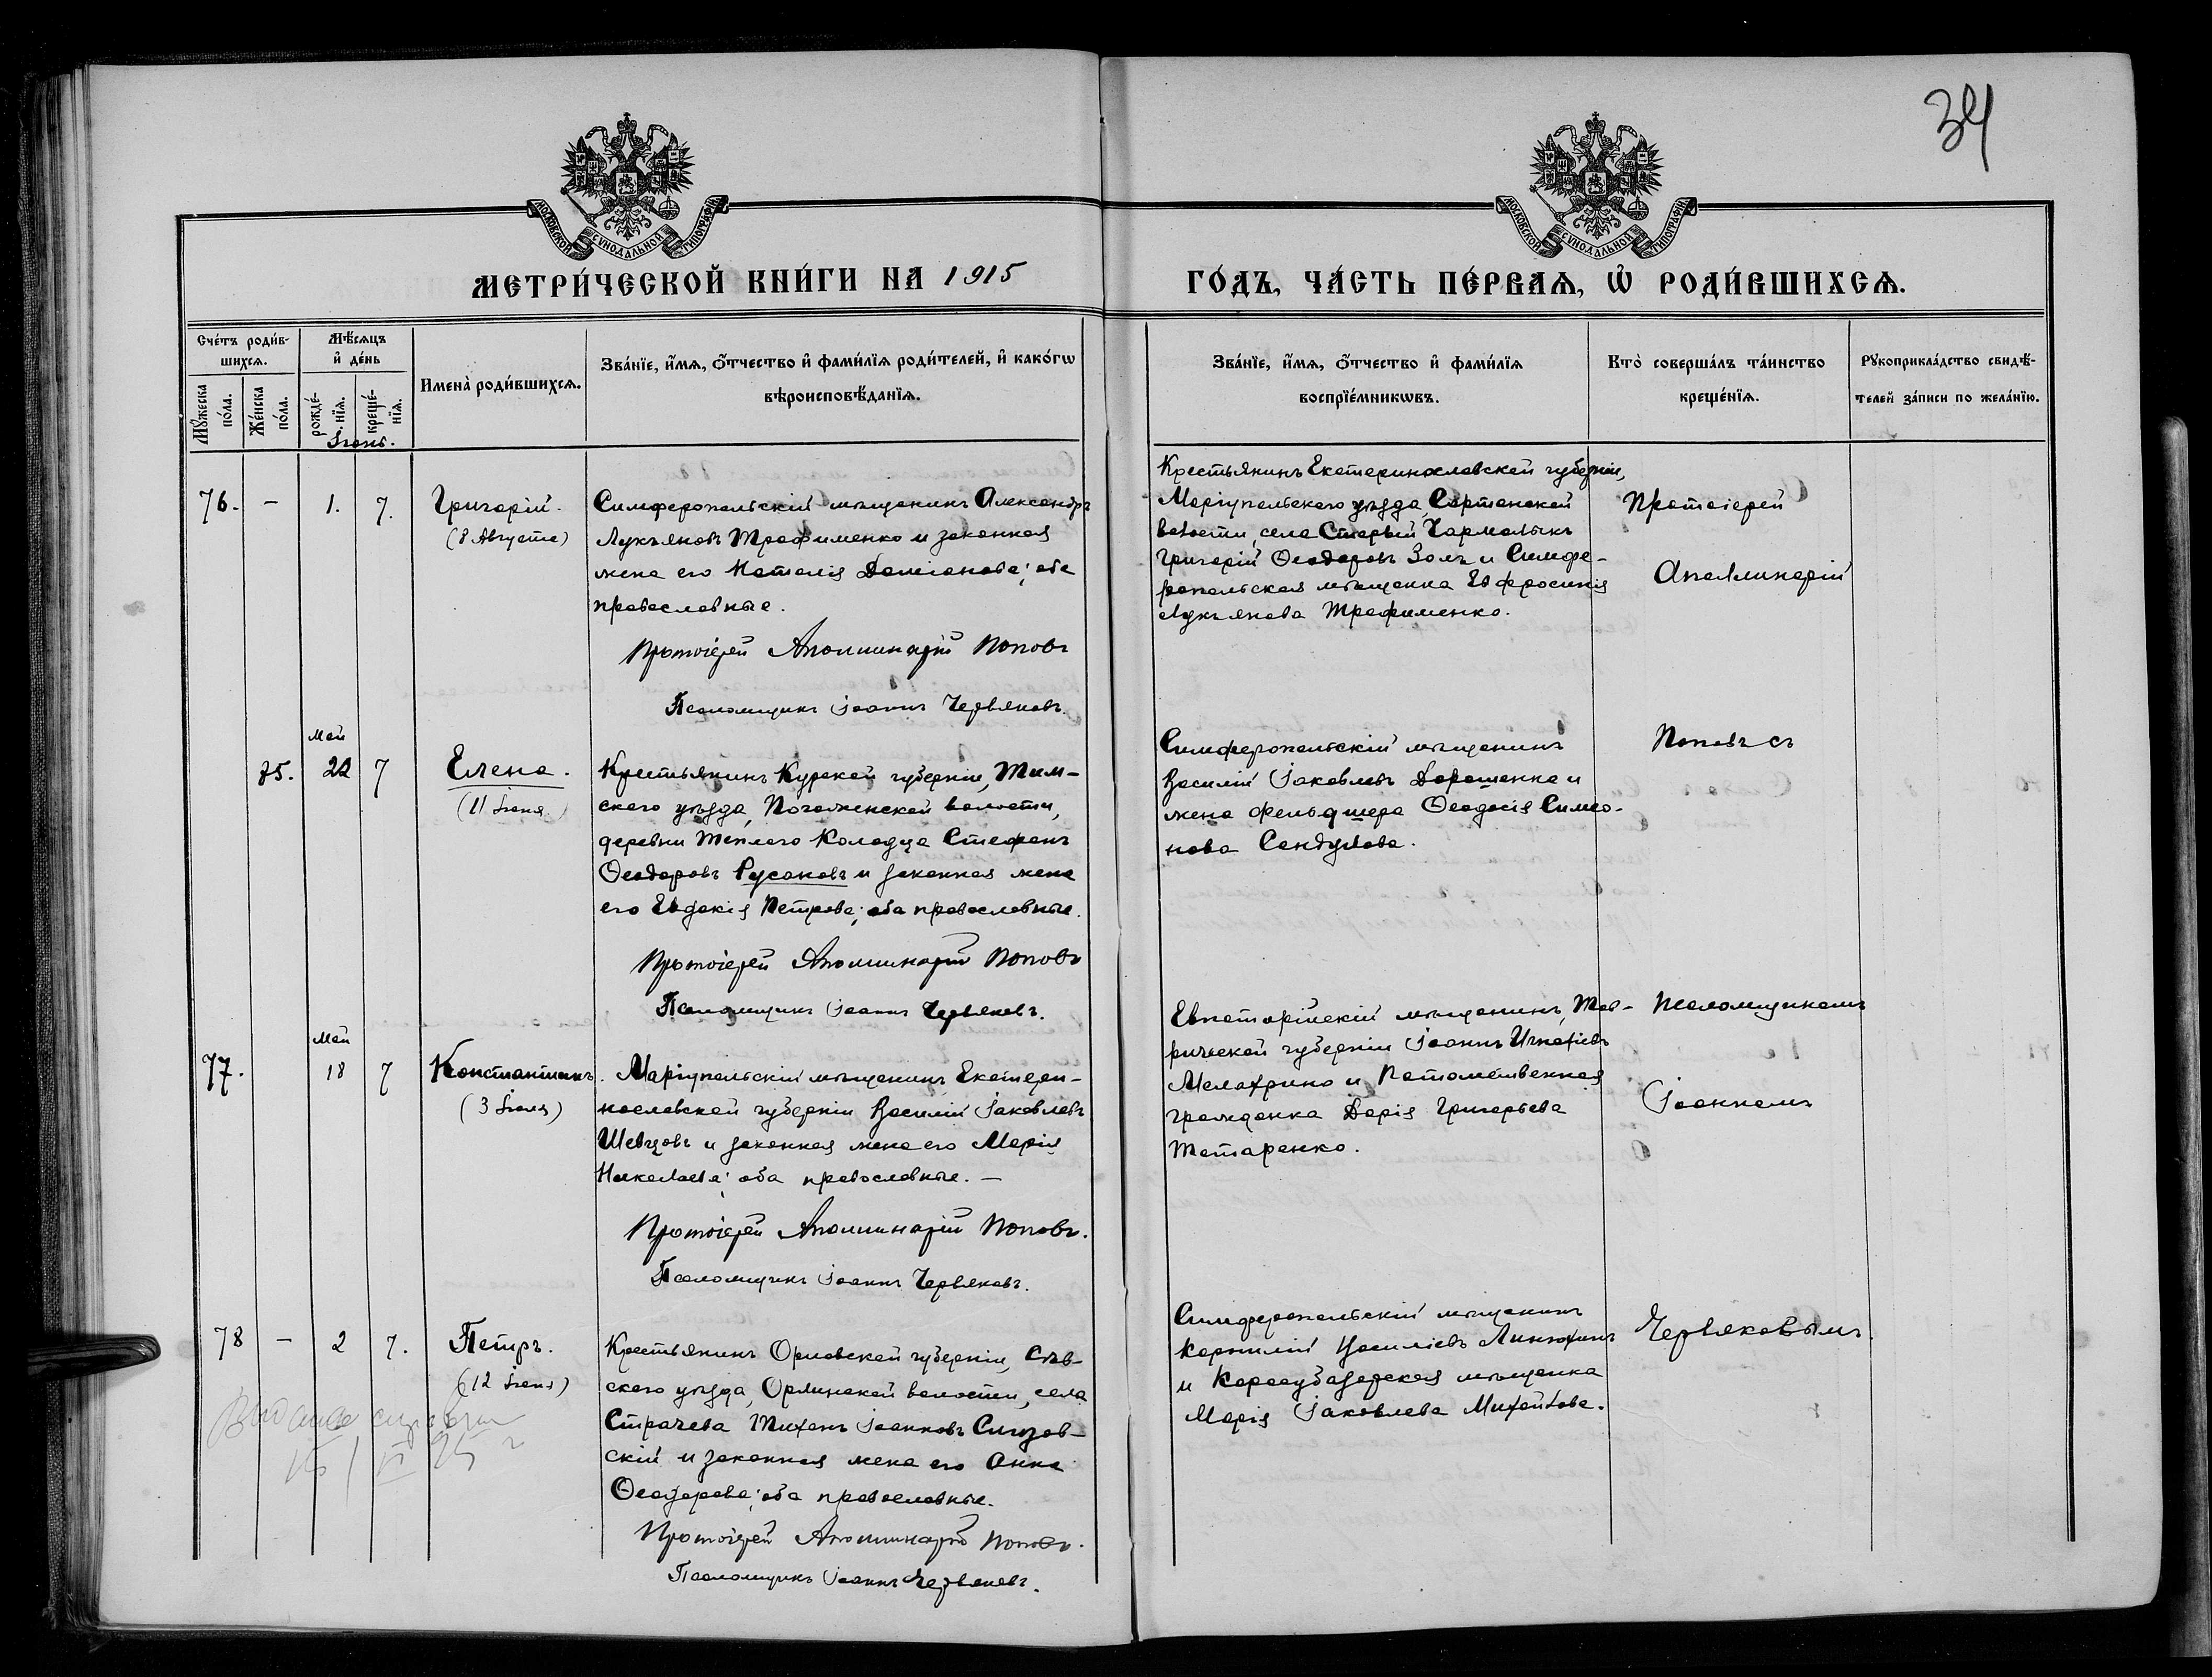 34
МОСКОВСКОЙ СУНОДАЛЬНОЙ ТИПОГРАФІИ
МОСКОВСКОЙ СУНОДАЛЬНОЙ ТИПОГРАФІИ
МЕТРИ́ЧЕСКОЙ КНИ́ГИ НА 1915
ГО́ДЪ, ЧА́СТЬ ПЕ́РВАѦ, Ѡ҆ РОДИ́ВШИХСѦ.
Сче́тъ роди́в-
шихсѧ.
Мꙋжеска по́ла.
Же́нска по́ла.
Мѣ́сѧцъ
и҆ де́нь
рожде́-
нїѧ.
креще́-
нїѧ.
Имена̀ роди́вшихсѧ.
Зва́нїе, и҆́мѧ, ѻ҆́тчество и҆ фами́лїѧ роди́телей, и҆ како́гѡ
вѣроисповѣ́данїѧ.
Зва́нїе, и҆́мѧ, ѻ҆́тчество и҆ фами́лїѧ
воспрїе́мникѡвъ.
Кто̀ соверша́лъ та́инство
креще́нїѧ.
Рꙋкоприкла́дство свидѣ́-
телей за́писи по жела́нїю.
Іюнь.
76. – 1. 7. Григорій.
(8 Августа)
Симферопольскій мѣщанинъ Александръ
Лукъяновъ Трофименко и законная
жена его Наталія Даміанова; оба
православные.
Протоіерей Аполлинарій Поповъ
Псаломщикъ Іоаннъ Червяковъ.
Крестьянинъ Екатеринославской губерніи,
Маріупольскаго уѣзда, Сартанской
волости, села Старый Чармалыкъ
Григорій Ѳеодоровъ Золъ и Симфе-
ропольская мѣщанка Евфросинія
Лукъянова Трофименко.
Протоіерей
Аполлинарій
Май
75. 22 7 Елена.
(11 Іюня.)
Крестьянинъ Курской губерніи, Тим-
скаго уѣзда, Погоженской волости,
деревни Теплаго Колодца Стефанъ
Ѳеодоровъ Русановъ и законная жена
его Евдокія Петрова; оба православные.
Протоіерей Аполлинарій Поповъ
Псаломщикъ Іоаннъ Червяковъ.
Симферопольскій мѣщанинъ
Василій Іаковлевъ Дорошенко и
жена фельдшера Ѳеодосія Симео-
нова Сандулова.
Поповъ съ
Май
77. 18 7 Константинъ.
(3 Іюня)
Маріупольскій мѣщанинъ Екатери-
нославской губерніи Василій Іаковлевъ
Шевцовъ и законная жена его Марія
Николаева; оба православные. –
Протоіерей Аполлинарій Поповъ.
Псаломщикъ Іоаннъ Червяковъ.
Евпаторійскій мѣщанинъ, Тав-
рической губерніи Іоаннъ Игнатіевъ
Мелахрино и Потомственная
гражданка Дарія Григорьева
Татаренко.
Псаломщикомъ
Іоанномъ
78 – 2 7. Петръ.
(12 Іюня)
Крестьянинъ Орловской губерніи, Сѣв-
скаго уѣзда, Орлинской волости, села
Страчева Тихонъ Іоанновъ Сигзов-
скій и законная жена его Анна
Ѳеодорова; оба православные.
Протоіерей Аполлинарій Поповъ.
Псаломщикъ Іоаннъ Червяковъ.
Симферопольскій мѣщанинъ
Корнилій Василіевъ Анюхинъ
и Карасубазарская мѣщанка
Марія Іаковлева Михайлова.
Червяковымъ.
Выдана справка